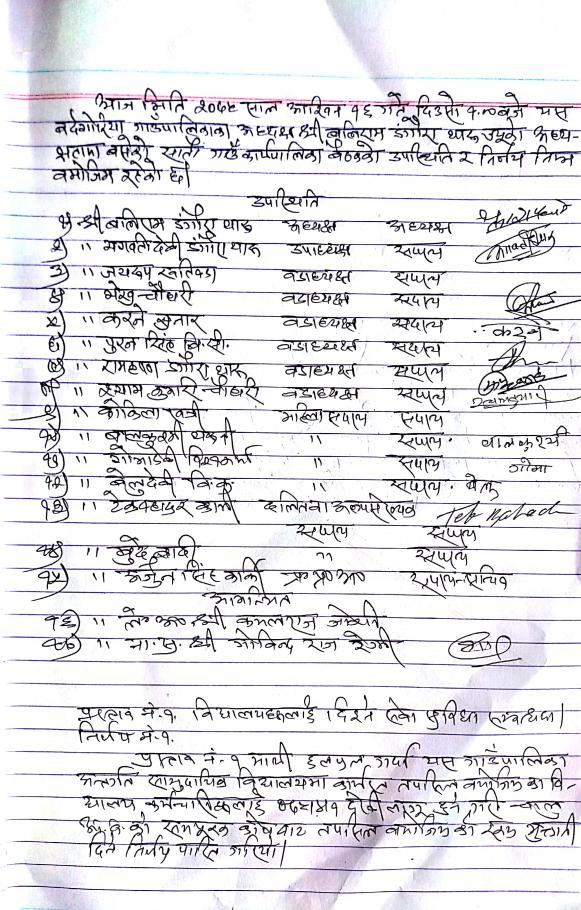 आज मिति २०७४ साल आश्विन १६ गते दिउसो १.०० बजे यस
बर्दगोरिया गाउँपालिकाका अध्यक्ष श्री बलिराम डंगौरा थारु ज्यूको अध्य-
क्षतामा बसेको गाउँ कार्यपालिका बैठकको उपस्थिति र निर्णय निम्न
बमोजिम रहेको छ।
उपस्थिति
१) श्री बलिराम डंगौरा थारु अध्यक्ष अध्यक्ष
२) " भगवतीदेवी डंगौरा थारु उपाध्यक्ष सदस्य
३) " वडाध्यक्ष सदस्य
४) " भेखु चौधरी वडाध्यक्ष सदस्य
५) " करने सुनार वडाध्यक्ष सदस्य करने
६) " पुरन सिंह बि.सी. वडाध्यक्ष सदस्य
७) " रामकृष्ण डंगौरा थारु वडाध्यक्ष सदस्य
८) " श्याम कुमारी चौधरी वडाध्यक्ष सदस्य
९) " कोकिला महिला सदस्य सदस्य
१०) " बालकुमारी " सदस्य
११) " गोमादेवी विश्वकर्मा " सदस्य गोमा
१२) " बेलुदेवी वि.क. " सदस्य बेलु
१३) " टेकबहादुर कामी दलित वा अल्पसंख्यक
सदस्य सदस्य
१४) " बुद्द बादी " सदस्य
१५) " अर्जुन सिंह कार्की प्र.प्र.अ. सदस्य-सचिव
आमन्त्रित
१६) " ले.अ. श्री कमलराज
१७) " प्रा.सु. श्री गोविन्द राज रेग्मी
प्रस्ताव नं. १. विद्यालयहरुलाई दिइने सेवा सुविधा सम्बन्धमा।
निर्णय नं. १.
प्रस्ताव नं. १ माथी छलफल गर्दा यस गाउँपालिका
अन्तर्गत सामुदायिक विद्यालयमा कार्यरत तपासिल बमोजिमका वि-
द्यालय कर्मचारीहरुलाई देखी लागू हुने गरी चालु
आ.व. को कोषबाट तपासिल बमोजिम को रकम भुक्तानी
दिने निर्णय पारित गरियो।